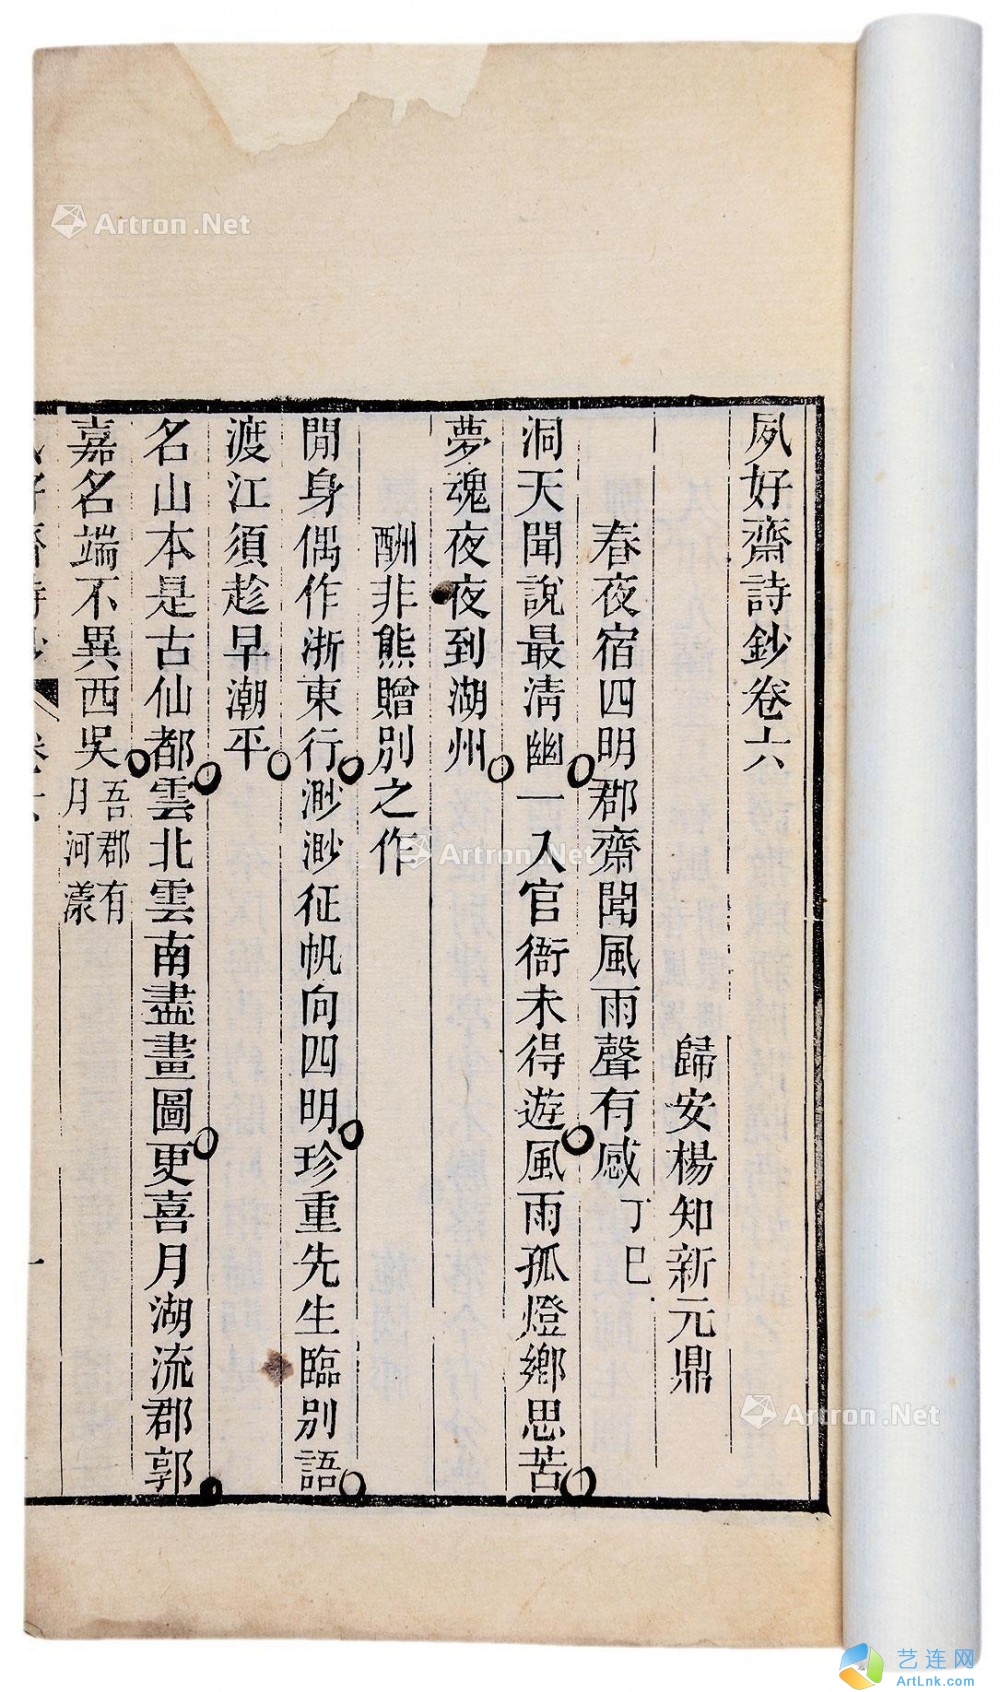 夙好齋詩鈔卷六
歸安楊知新元鼎
春夜宿四明郡齋聞風雨聲有感丁巳
洞天聞說最清幽一入官衙未得遊風雨孤燈鄉思苦
夢魂夜夜到湖州
酬非熊贈別之作
閒身偶作浙東行渺渺征帆向四明珍重先生臨別語
渡江須趁早潮平
名山本是古仙都雲北雲南盡畫圖更喜月湖流郡郭
嘉名端不異西吳吾郡有
月河漾
Artron.Net
Artron.Net
Artron.Net
艺连网
ArtLnk.com